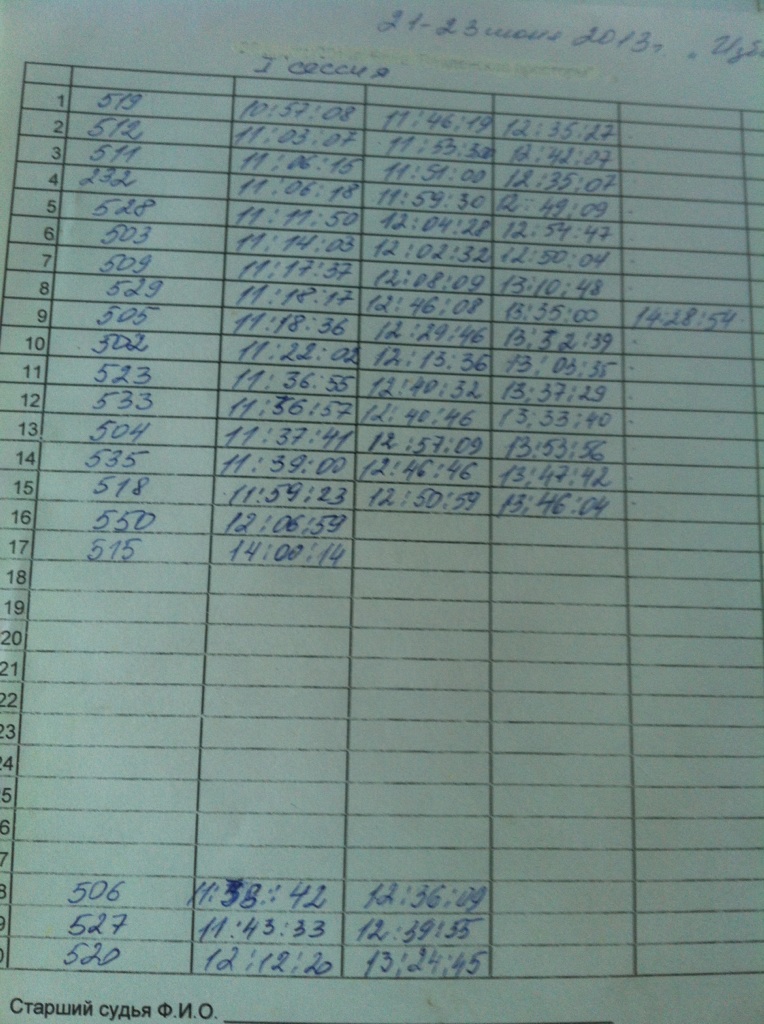 21-23 июня 2013г. "Изб
I сессия
1 519 10:57:08 11:46:19 12:35:27
2 512 11:03:07 11:53:30 12:42:07
3 511 11:06:15 11:51:00 12:35:07
4 232 11:06:18 11:59:30 12:49:09
5 528 11:11:50 12:04:28 12:54:47
6 503 11:14:03 12:02:32 12:50:04
7 509 11:17:37 12:08:09 13:10:48
8 529 11:18:17 12:46:08 13:35:00 14:28:54
9 505 11:18:36 12:29:46 13:32:39
10 502 11:22:02 12:13:36 13:03:35
11 523 11:36:55 12:40:32 13:37:29
12 533 11:36:57 12:40:46 13:33:40
13 504 11:37:41 12:57:09 13:53:56
14 535 11:39:00 12:46:46 13:47:42
15 518 11:59:23 12:50:59 13:46:04
16 550 12:06:59
17 515 14:00:14
18
19
20
21
22
23
24
5
6
7
8 506 11:38:42 12:36:09
9 527 11:43:33 12:39:55
0 520 12:12:20 13:24:45
Старший судья Ф.И.О.